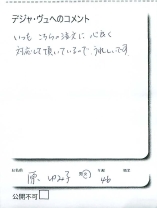 デジャ・ヴュへのコメント
いつも こちらの注文に 心良く
対応して頂いているので、うれしいです
お名前 原 ゆみ子 年齢 46
公開不可